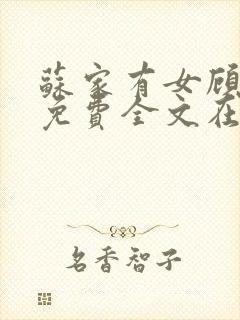 蘇家有女顾
免費全文在
名香智子